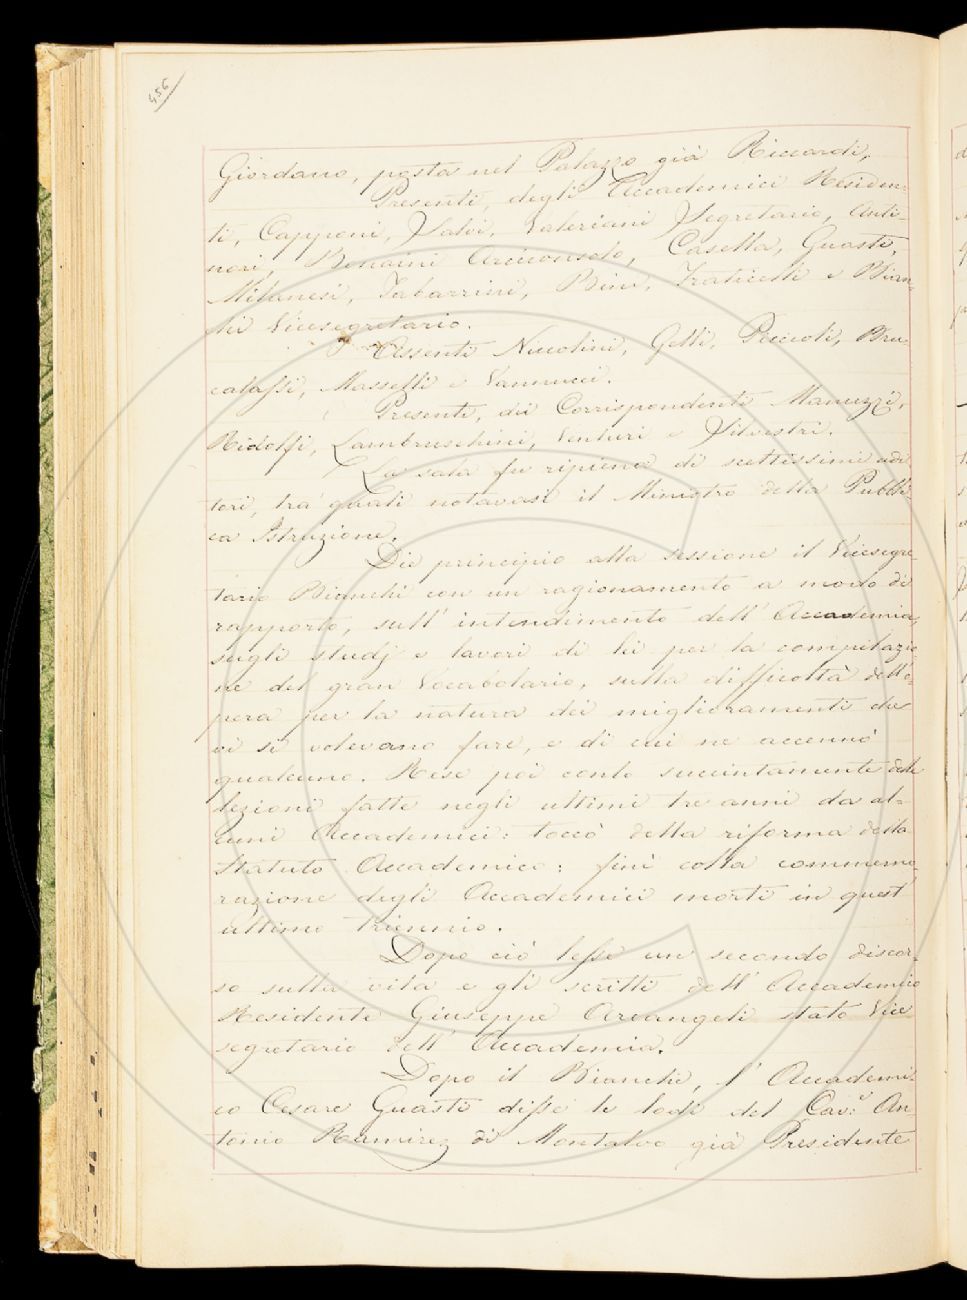 456
Giordano, posta nel Palazzo già Riccardi,
Presenti, degli Accademici Residen-
ti, Capponi, Salvi, Valeriani Segretario, Anti-
nori, Bonaini Arciconsolo, Casella, Guasti,
Milanesi, Tabarrini, Bini, Fraticelli e Bian-
chi Vicesegretario.
Assenti Niccolini, Gelli, Peccioli, Bru-
calassi, Masselli e Vannucci.
Presenti, dei Corrispondenti Manuzzi,
Ridolfi, Lambruschini, Venturi e Silvestri.
La sala fu ripiena di scettissimi udi
tori, tra' quali notavasi il Ministro della Pubbli-
ca Istruzione.
Diè principio alla sessione il Vicesegre-
tario Bianchi con un ragionamento a modo di
rapporto, sull' intendimento dell' Accademia,
sugli studj e lavori di lei per la compilazio
ne del gran Vocabolario, sulla difficoltà dell'o-
pera per la natura dei miglioramenti che
vi si volevano fare, e di cui ne accennò
qualcuno. Rese poi conto succintamente delle
lezioni fatte negli ultimi tre anni da al-
cuni Accademici: toccò della riforma dello
Statuto Accademico: finì colla commemo-
razione degli Accademici morti in quest'
ultimo triennio.
Dopo ciò lesse un secondo discor-
so sulla vita e gli scritti dell' Accademico
Residente Giuseppe Arcangeli stato Vice
segretario dell' Accademia.
Dopo il Bianchi, l' Accademi-
co Cesare Guasti disse le lodi del Cav.r An
tonio Ramirez di Montalvo già Presidente